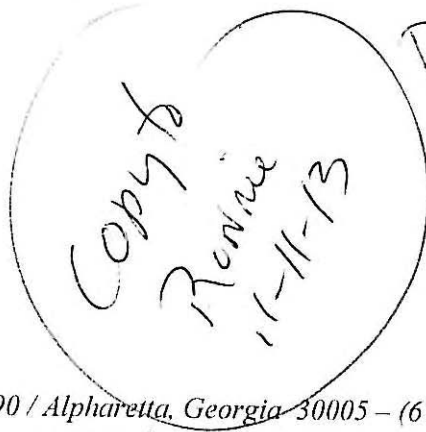 Copy to
Ronnie
11-11-13
90 / Alpharetta, Georgia 30005 – (6